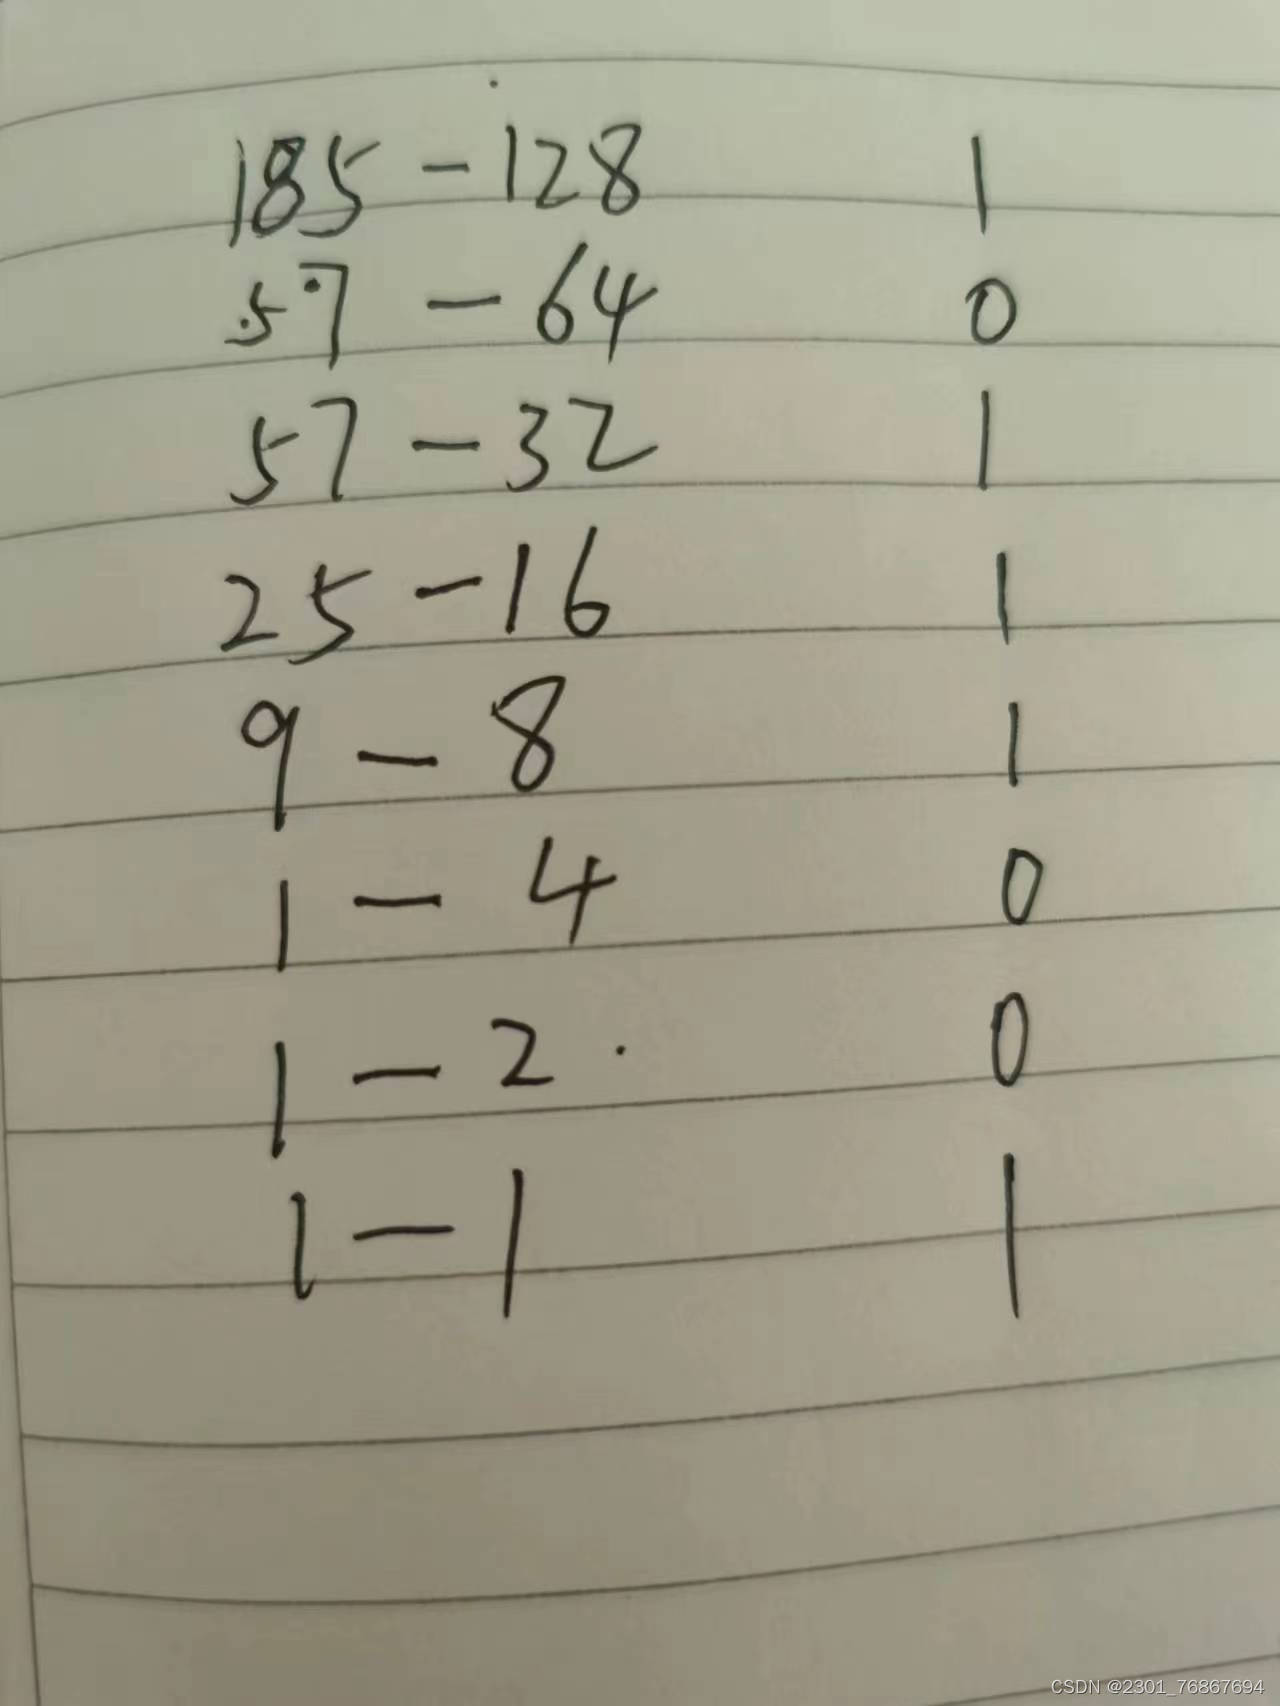 185 - 128 1
57 - 64 0
57 - 32 1
25 - 16 1
9 - 8 1
1 - 4 0
1 - 2 0
1 - 1 1
CSDN @2301_76867694